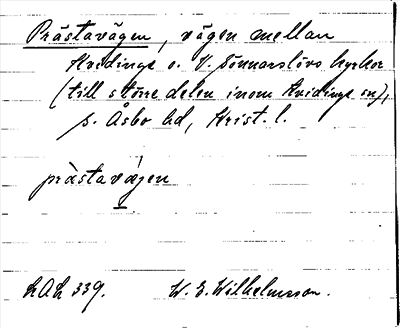 Prästavägen, vägen mellan
Kvidinge o. V. Sönnarslövs kyrkor
(till större delen inom Kvidinge sn),
s. Åsbo hd, Krist. l.
prästavägen
LAL 339. W. E. Wilhelmsson.